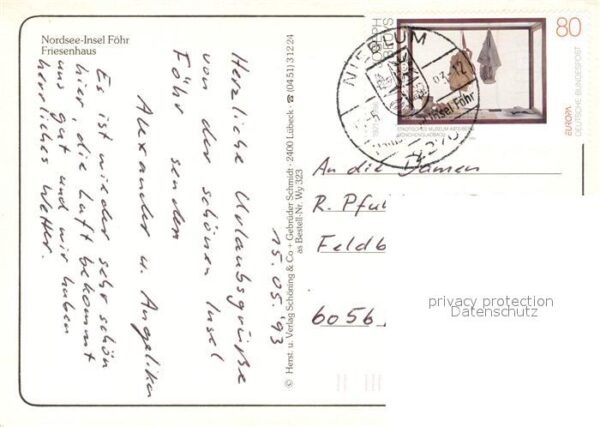 Nordsee-Insel Föhr
Friesenhaus
15.05.'93
Herzliche Urlaubsgrüße
von der schönen Insel
Föhr senden
Alexander u. Angelika
Es ist wieder sehr schön
hier, die Luft bekommt
uns gut und wir haben
herrliches Wetter.
© Herst. u. Verlag Schöning & Co + Gebrüder Schmidt · 2400 Lübeck · ☎ (04 51) 3 12 24
as Bestell-Nr. Wy 323
JOSEPH BEUYS
80
EUROPA
DEUTSCHE BUNDESPOST
STÄDTISCHES MUSEUM ABTEIBERG
MÖNCHENGLADBACH
NIEBLUM
Insel Föhr
An die Damen
R. Pfu
Feldb
6056
privacy protection
Datenschutz